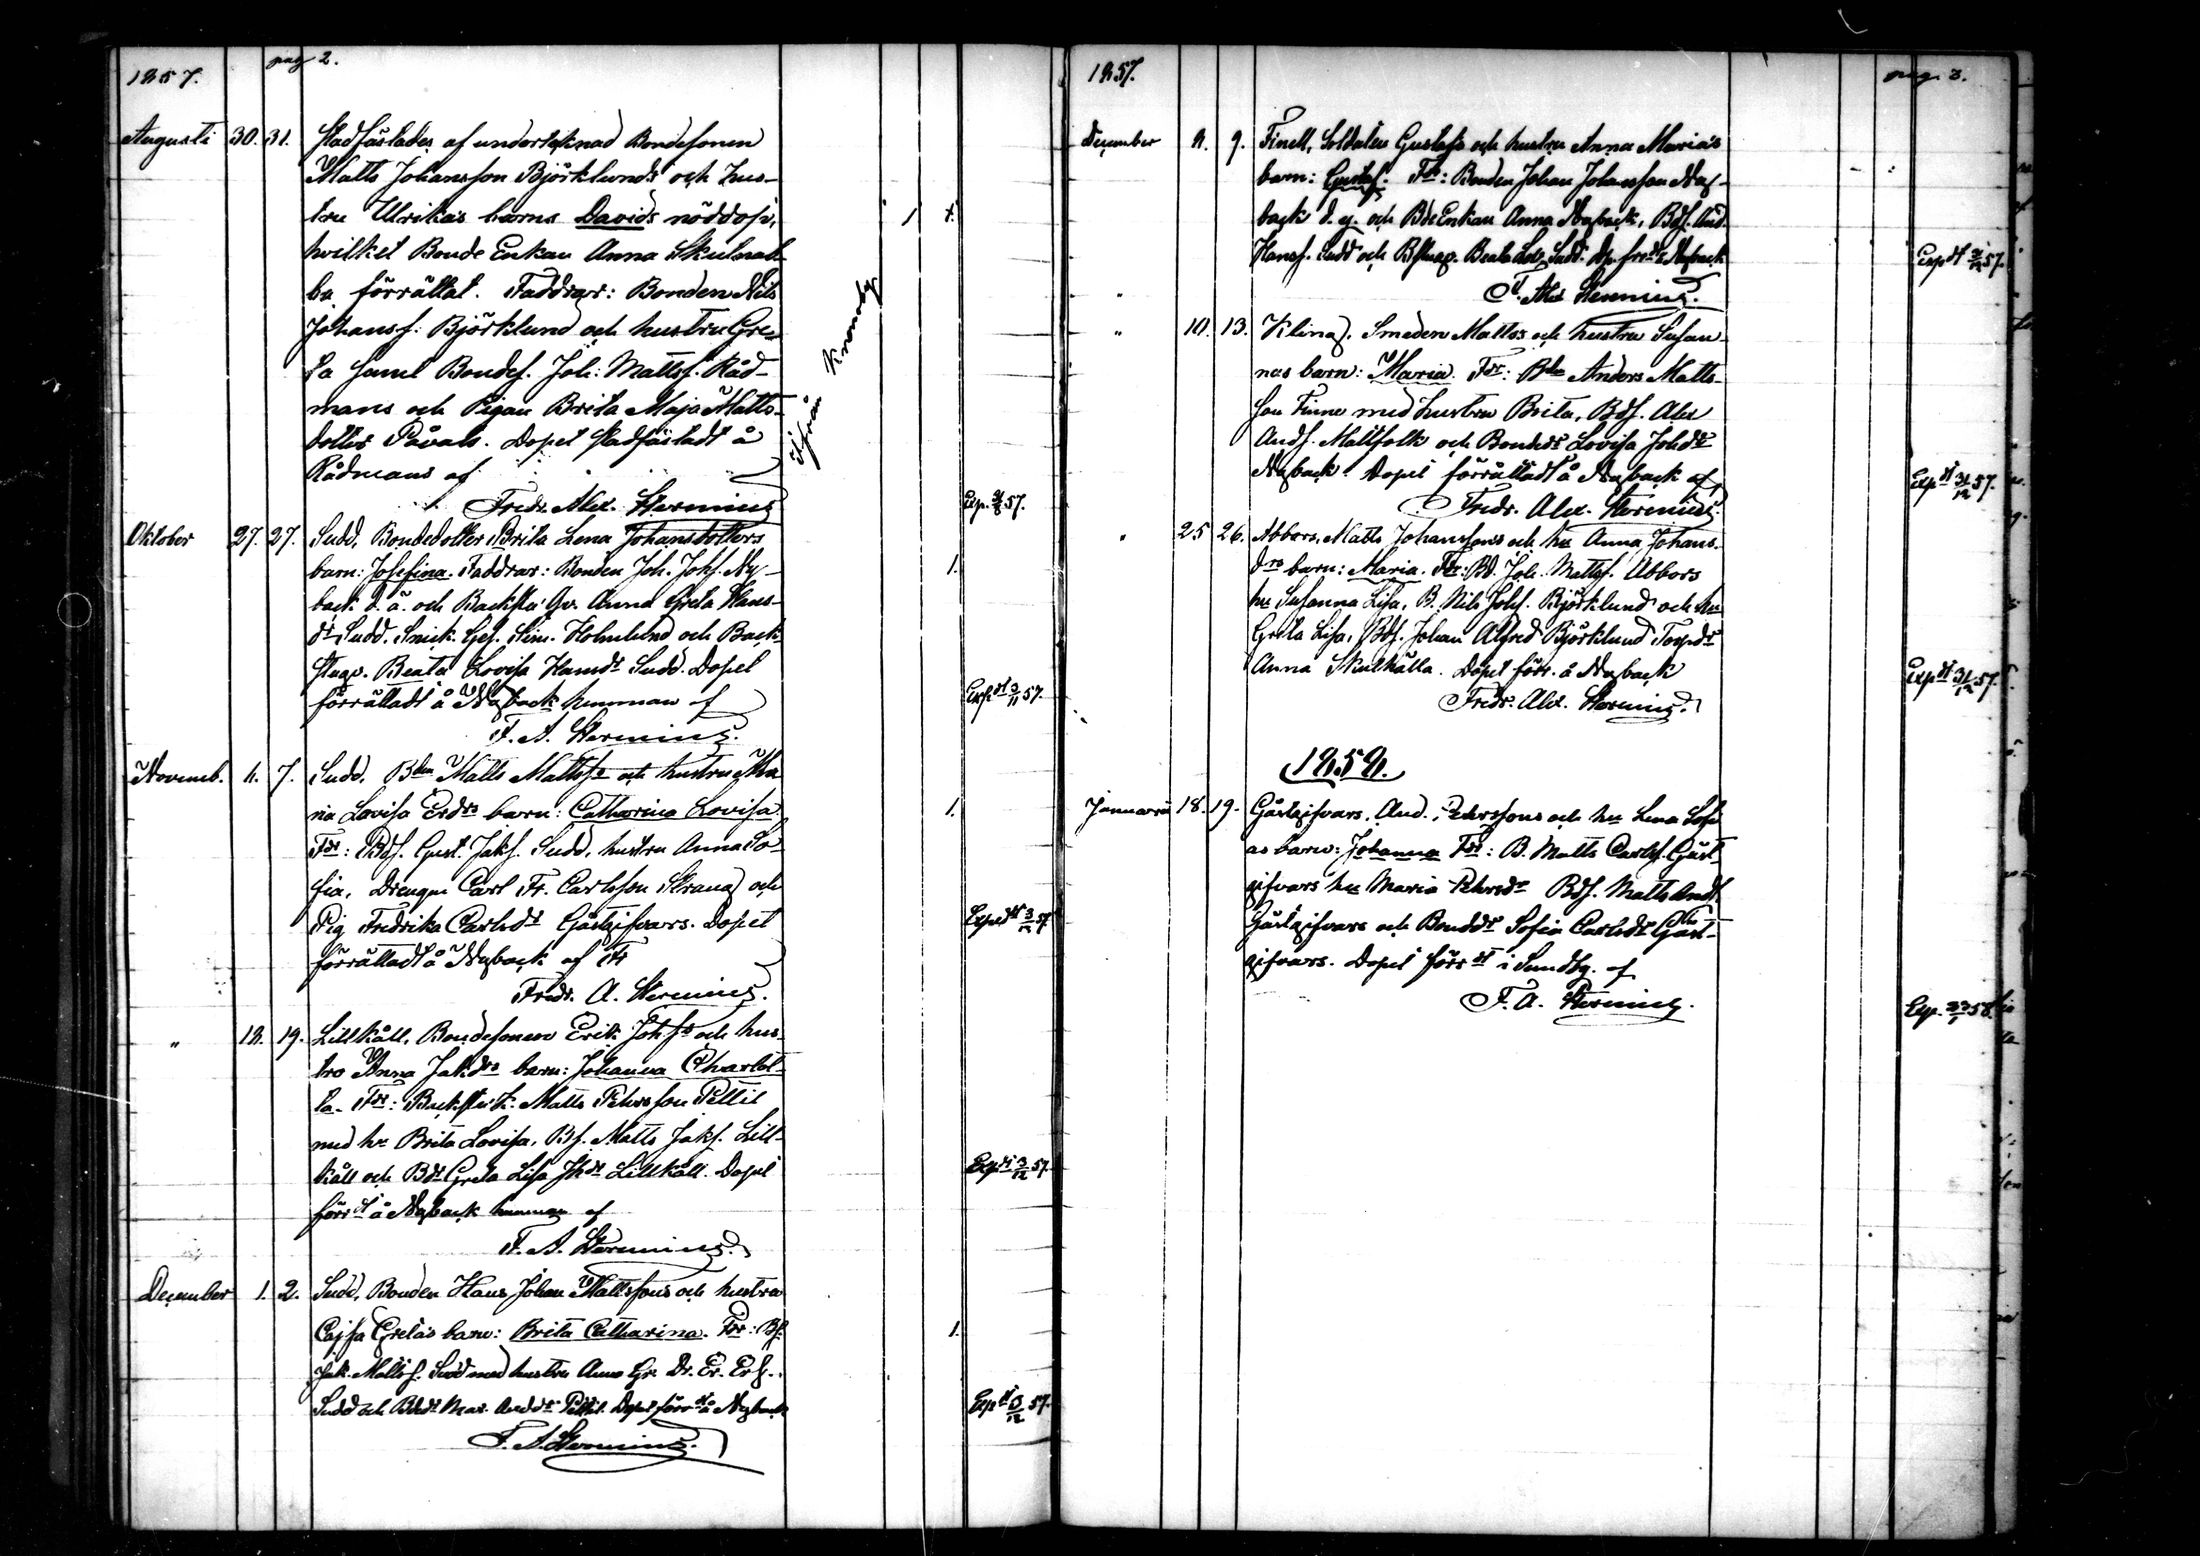 pag 2.
1857.
Augusti 30. 31. Stadfästades af undertecknad Bondesonen
Matts Johansson Björklunds och hus-
tru Ulrikas barns Davids nöddop,
hvilket Bonde Enkan Anna Skulnab-
ba förrättat. Faddrar: Bonden Nils
Johansf. Björklund och hustru Gre-
ta samt Bondes. Joh: Mattsf. Råd-
mans och Pigan Brita Maja Matts-
dotter Påvals. Dopet stadfästadt å
Rådmans af
Fredr. Alex. Hermius
ifrån Kronoby
1 x.
Exp. 31/8 57.
Oktober 27. 27. Sudd, Bondedotter Brita Lena Johansdotters
barn: Josefina. Faddrar: Bonden Joh. Johf. Ny-
back d. ä. och Backstu Qv. Anna Greta Hans-
dr Sudd. Snick. Ges. Sim. Holmlund och Back-
stuqv. Beata Lovisa Hansdr Sudd. Dopet
förrättadt å Nyback hemman af
F. A. Hermius.
1.
Expdt 3/11 57.
Novemb. 4. 7. Sudd, Bden Matts Mattsfs och hustru Ma
ria Lovisa Erdrs barn: Catharina Lovisa.
Fdr: Bdf. Gust. Jakf. Sudd, hustru Anna So-
fia, Drengen Carl Fr. Carlsson Strang och
Pig Fredrika Carlsdr Gästgifvars. Dopet
förrättadt å Nyback af Fr
Fredr. A. Hermius.
1.
Exped dt 3/12 57
" 18. 19. Lillkåll, Bondesonen Erik Johfs och hus-
tro Anna Jakdrs barn: Johanna Charlot-
ta. Fdr: Backstu k. Matts Pehrsson Pettil
med hu Brita Lovisa, Bf. Matts Jakf. Lill-
kåll och Bdr Greta Lisa Jhdr Lillkåll. Dopet
förrdt å Nyback hemman af
F. A. Hermius.
Expdt 3/12 57.
December 1. 2. Sudd, Bonden Hans Johan Mattssons och hustru
Cajsa Gretas barn: Brita Catharina. Fdr: Bf.
Jak. Mattsf. Sudd med hustru Anna Gr. Dr. Er. Erf.
Sudd och Bdedr Mar. Andr Pettil. Dopet förrdt å Nyback
F. A. Hermius.
1.
Expdt 3/12 57.
pag. 3.
1857.
December 8. 9. Finell, Soldaten Gustafs och hustru Anna Marias
barn: Gustaf. Fdr: Bonden Johan Johansson Ny-
back d. y. och Bde Enkan Anna Nyback, Bdf. And.
Hansf. Sudd och Bstuqv. Beata Lov. Sudd. Dp. frdt å Nyback
F. Alex Hermius.
" 10. 13. Kling, Smeden Mattss och hustru Susan-
nas barn: Maria. Fdr: Bde Anders Matts-
son Finne med hustru Brita, Bdf. Alex
Andf. Mattfolk och Bondedr Lovisa Johdr
Nyback. Dopet förrättadt å Nyback af
Fredr. Alex. Hermius
Expdt 31/12 57.
" 25 26. Abbors, Matts Johanssons och hu Anna Johans-
drs barn: Maria. Fdr: Bd. Joh. Mattsf. Abbors
hu Susanna Lisa, B. Nils Johf. Björklund och hu
Greta Lisa, Bdf. Johan Alfred Björklund Torpdr
Anna Skulkälla. Dopet förr. å Nyback
Fredr. Alex. Hermius.
Expdt 31/12 57.
1858.
Januari 18. 19. Gästgifvars, And. Pehrssons och hu Lena Sofi
as barn: Johanna Fdr: B. Matts Carlsf. Gäst-
gifvars hu Maria Pehrsdr Bdf. Matts Andf.
Gästgifvars och Bondedr Sofia Carlsdr Gäst-
gifvars. Dopet förrdt i Sundby. af
F. A. Hermius.